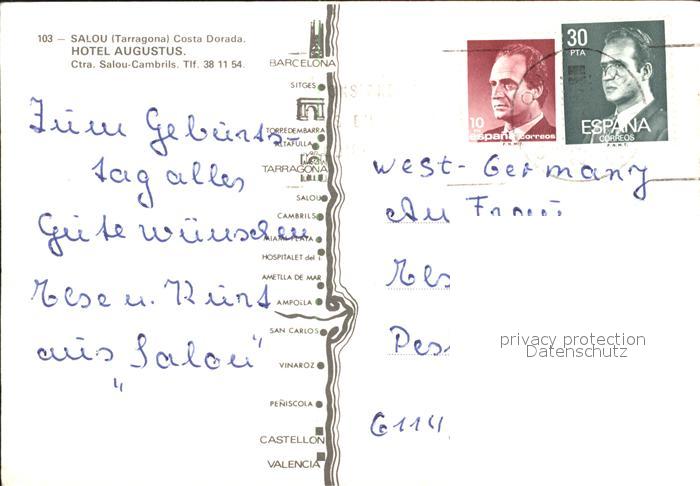 103 — SALOU (Tarragona) Costa Dorada.
HOTEL AUGUSTUS.
Ctra. Salou-Cambrils. Tlf. 38 11 54.
Zum Geburts-
tag alles
Gute wünschen
Else u. Kurt
aus "Salou"
BARCELONA
SITGES
TORREDEMBARRA
ALTAFULLA
TARRAGONA
SALOU
CAMBRILS
MIAMI PLAYA
HOSPITALET del I.
AMETLLA DE MAR
AMPOLLA
SAN CARLOS
VINAROZ
PEÑISCOLA
CASTELLON
VALENCIA
10
PTA
españa correos
F.N.M.T.
30
PTA
ESPAÑA
CORREOS
F.N.M.T.
West-Germany
An
6114
privacy protection
Datenschutz